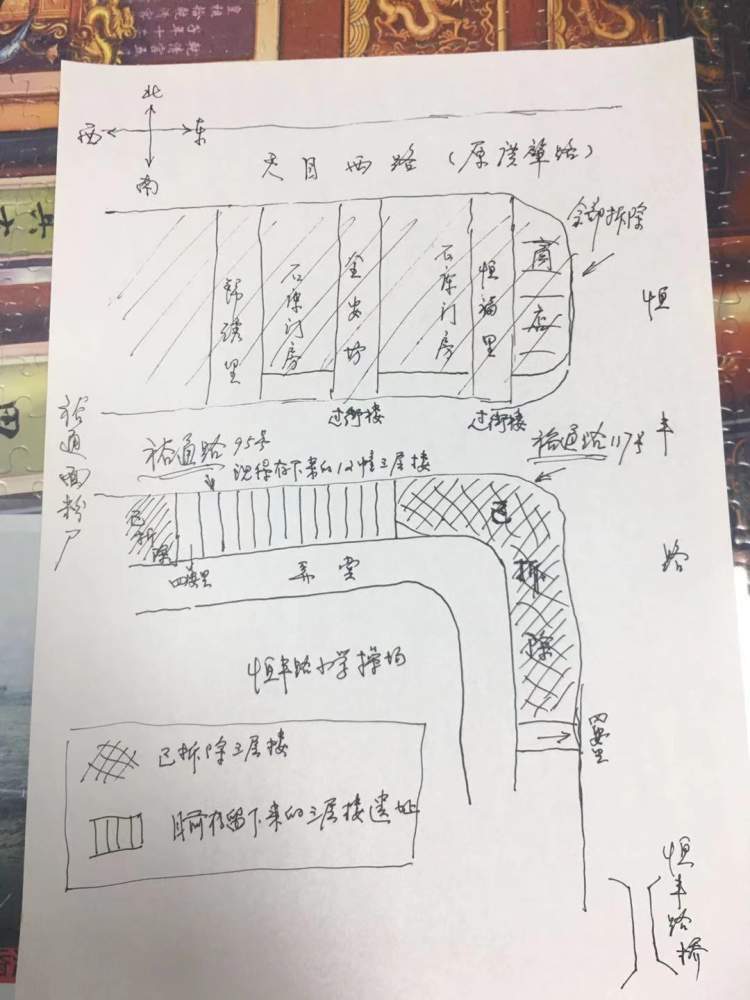 北
西
东
南
天目西路(原汉中路)
全部拆除
商店
锦绣里
石库门房
金安坊
石库门房
恒福里
恒丰路
过街楼
过街楼
裕通面粉厂
裕通路95号
裕通路117号
现保存下来的12幢三层楼
已拆除
已拆除
四安里
弄堂
恒丰路小学操场
四安里
已拆除三层楼
目前存留下来的三层楼遗址
恒丰路桥